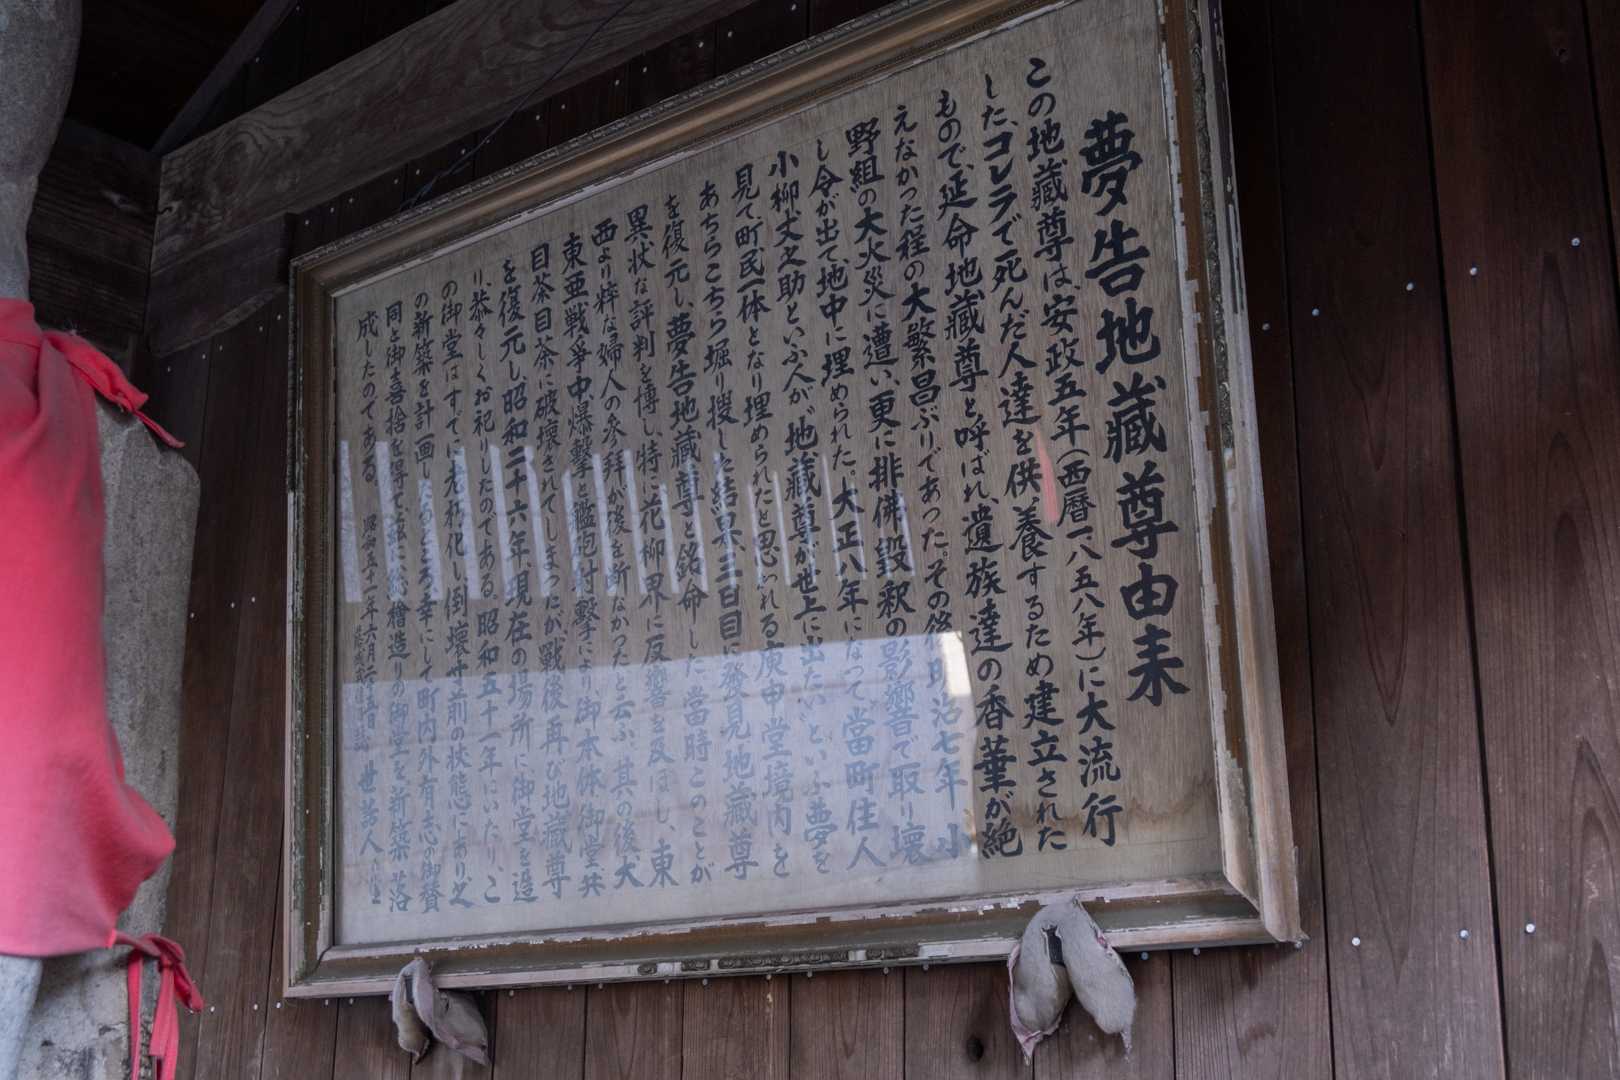 夢告地蔵尊由来
この地蔵尊は安政五年(西暦一八五八年)に大流行
した、コレラで死んだ人達を供養するため建立された
もので、延命地蔵尊と呼ばれ、遺族達の香華が絶
えなかった程の大繁昌ぶりであった。その後、明治七年小
野組の大火災に遭い、更に排佛毀釈の影響で取り壊
し令が出て、地中に埋められた。大正八年になって、當町住人
小柳丈之助といふ人が〝地蔵尊が世上に出たい〟といふ夢を
見て、町民一体となり埋められたと思われる庚申堂境内を
あちらこちら堀り捜した結果、三日目に發見、地蔵尊
を復元し、夢告地蔵尊と銘命した。當時このことが
異状な評判を博し、特に花柳界に反響を及ぼし、東
西より粋な婦人の参拝が後を断なかったと云ふ。其の後、大
東亜戦爭中、爆撃と艦砲射撃により、御本体、御堂共
目茶目茶に破壊されてしまったが、戦後再び地蔵尊
を復元し昭和二十六年、現在の場所に御堂を造
り、恭々しくお祀りしたのである。昭和五十一年にいたり、こ
の御堂はすでに老朽化し、倒壊寸前の状態にあり、之
の新築を計画したるところ、幸にして町内外有志の御賛
同と御喜捨を得て、茲に総檜造りの御堂を新築落
成したのである。 昭和五十一年六月二十五日 世話人